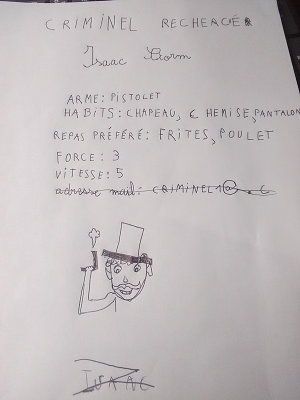 CRIMINEL RECHERCÉR
Isaac Storm
ARME: PISTOLET
HABITS: CHAPEAU, CHEMISE, PANTALON
REPAS PRÉFÉRÉ: FRITES, POULET
FORCE: 3
VITESSE: 5
adresse mail: CRIMINEL1@
ISAAC